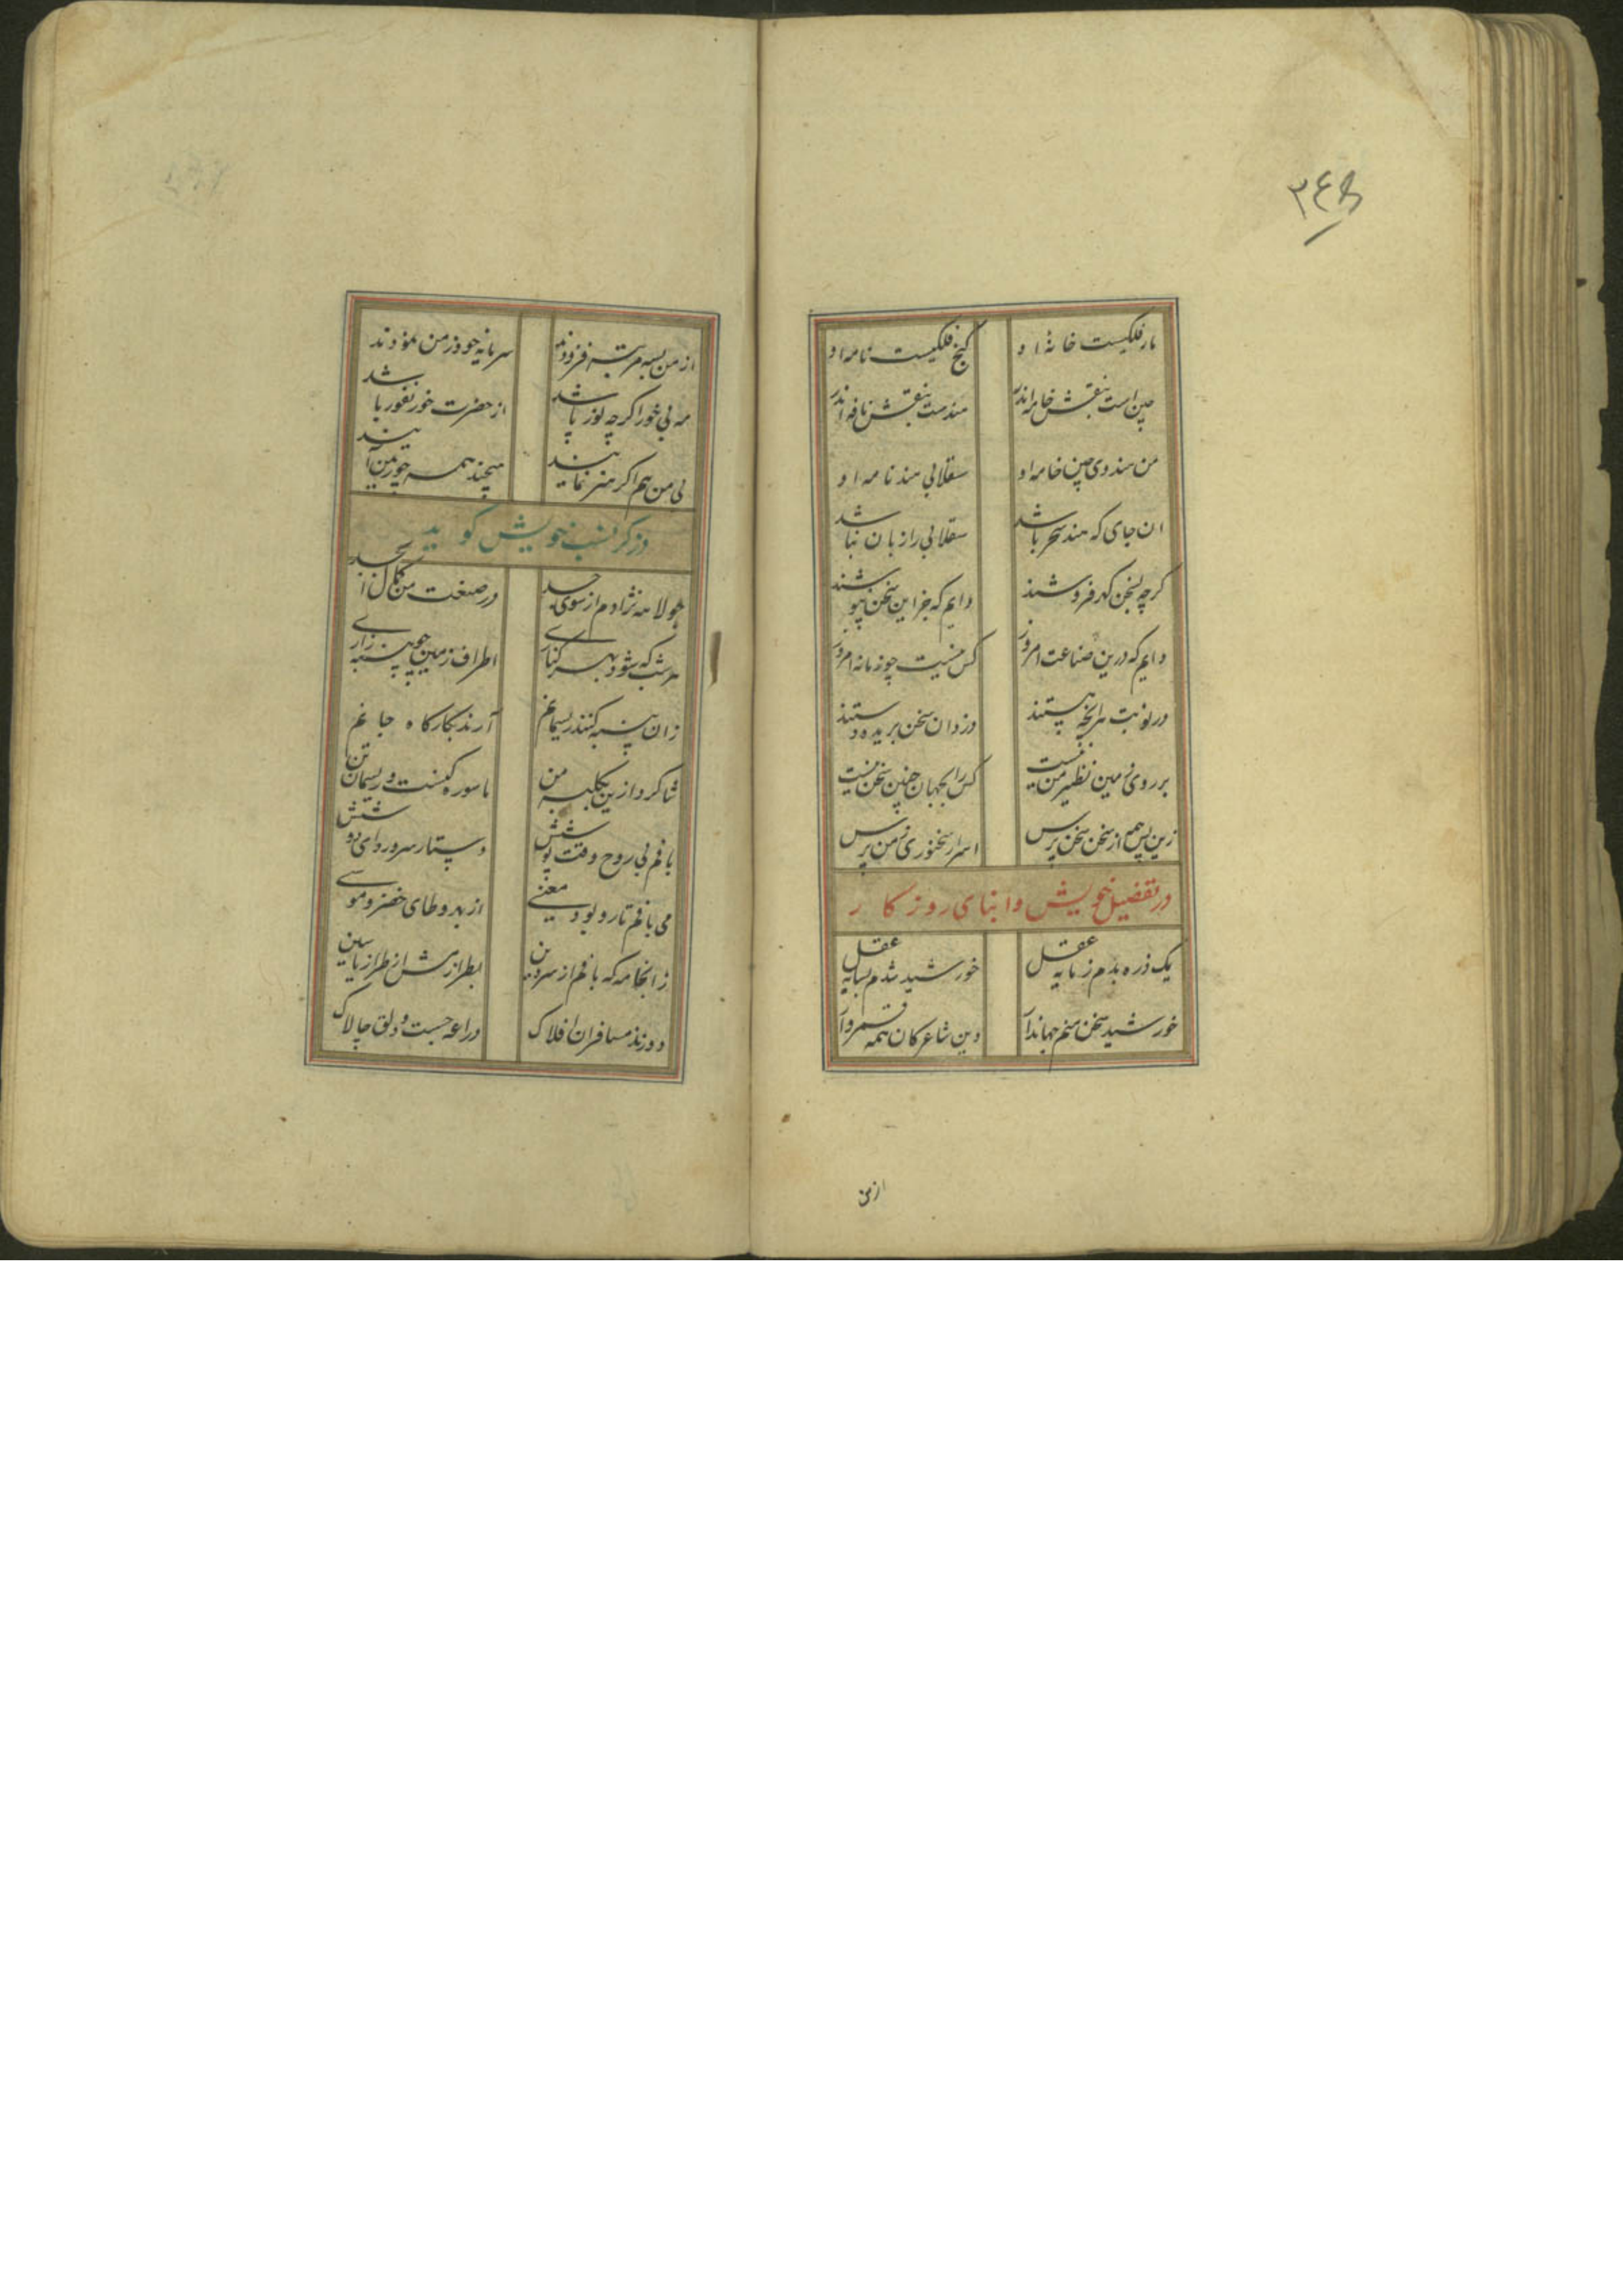 ۳۴۵
مار فلکیست خانهٔ او گنج فلکیست نامه او
چین است بنقش خامه اندر هندست بنقش نافه اندر
من هندوی چین خامه او سقلابی هند نامه او
ان جای که هند سحر باشد سقلابی را زبان نباشد
گرچه بسخن گهر فروشند دایم که جز این سخن نپوشند
دایم که درین صناعت امروز کس نیست چو زمانه امروز
در نوبت هر آنچه هستند دزدان سخن بریده دستند
بر روی زمین نظیر من نیست کس را بجهان چنین سخن نیست
زین پس همه از سخن سخن پرس اسرار سخنوری ز من پرس
در تفضیل خویش و ابنای روزکار
یک ذره بدم ز مایه عقل خورشید شدم بسایه عقل
خورشید سخن منم جهاندار وین شاعرکان همه قمروار
از من
از من بسه مرتبه فزودند سرمایه خود ز من نمودند
مه بی خور اگرچه نور پاشد از حضرت خور نفور باشد
بی من هم اگر هنر نمایند هیچند همه چو زمن آیند
در ذکر نسب خویش گوید
جولاهه نژادم از سوی جد در صنعت من کمال ابجد
هر شب که شود بهر کناری اطراف زمین چو پنبه زاری
زان پنبه کنند ریسمانم آرند بکارگاه جانم
شاگرد ازین کلبه من ماسوره کنست و ریسمان تن
بافم بی روح وقت پوشش دستار سر و ردای دوشش
می بافم تار و پود معنی از بهر وطای خضر و موسی
زانجامه که بافم از سر و بن بطرازمش از طراز یاسین
دوزند مسافران افلاک دراعه چست و دلق چالاک